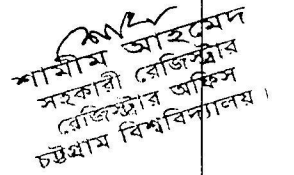 শামীম আহমেদ
সহকারী রেজিস্ট্রার
রেজিস্ট্রার অফিস
চট্টগ্রাম বিশ্ববিদ্যালয়।